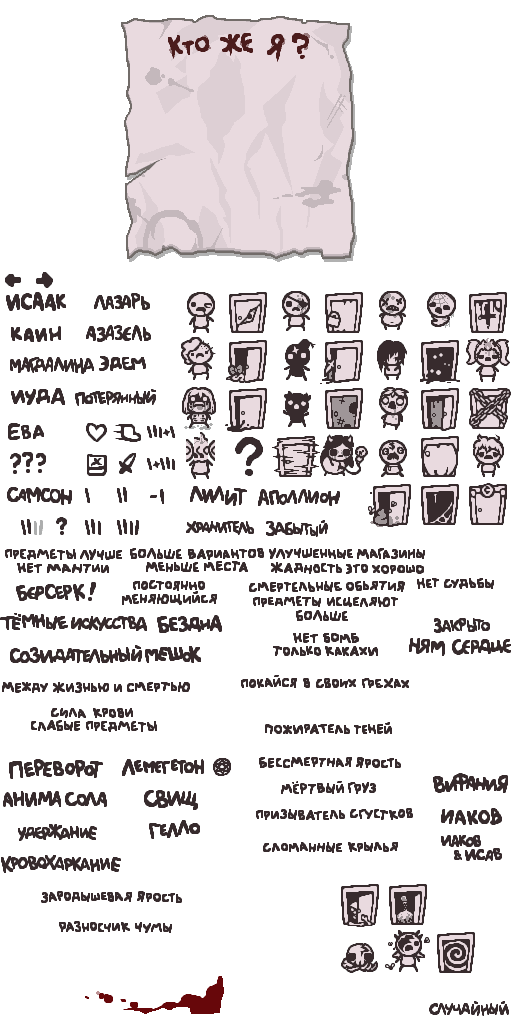 КТО ЖЕ Я?
ИСААК ЛАЗАРЬ
КАИН АЗАЗЕЛЬ
МАГДАЛИНА ЭДЕМ
ИУДА ПОТЕРЯННЫЙ
ЕВА
???
?
САМСОН
ЛИЛИТ АПОЛЛИОН
?
ХРАНИТЕЛЬ ЗАБЫТЫЙ
ПРЕДМЕТЫ ЛУЧШЕ БОЛЬШЕ ВАРИАНТОВ УЛУЧШЕННЫЕ МАГАЗИНЫ
НЕТ МАНТИИ МЕНЬШЕ МЕСТА ЖАДНОСТЬ ЭТО ХОРОШО
БЕРСЕРК!
ПОСТОЯННО
МЕНЯЮЩИЙСЯ
СМЕРТЕЛЬНЫЕ ОБЪЯТИЯ
ПРЕДМЕТЫ ИСЦЕЛЯЮТ
БОЛЬШЕ
НЕТ СУДЬБЫ
ТЁМНЫЕ ИСКУССТВА БЕЗДНА
НЕТ БОМБ
ТОЛЬКО КАКАХИ
ЗАКРЫТО
НЯМ СЕРДЦЕ
СОЗИДАТЕЛЬНЫЙ МЕШОК
МЕЖДУ ЖИЗНЬЮ И СМЕРТЬЮ
ПОКАЙСЯ В СВОИХ ГРЕХАХ
СИЛА КРОВИ
СЛАБЫЕ ПРЕДМЕТЫ
ПОЖИРАТЕЛЬ ТЕНЕЙ
ПЕРЕВОРОТ ЛЕМЕГЕТОН
БЕССМЕРТНАЯ ЯРОСТЬ
АНИМА СОЛА СВИЩ
МЁРТВЫЙ ГРУЗ
ВИФАНИЯ
УДЕРЖАНИЕ ГЕЛЛО
ПРИЗЫВАТЕЛЬ СГУСТКОВ
ИАКОВ
СЛОМАННЫЕ КРЫЛЬЯ
ИАКОВ
& ИСАВ
КРОВОХАРКАНИЕ
ЗАРОДЫШЕВАЯ ЯРОСТЬ
РАЗНОСЧИК ЧУМЫ
СЛУЧАЙНЫЙ